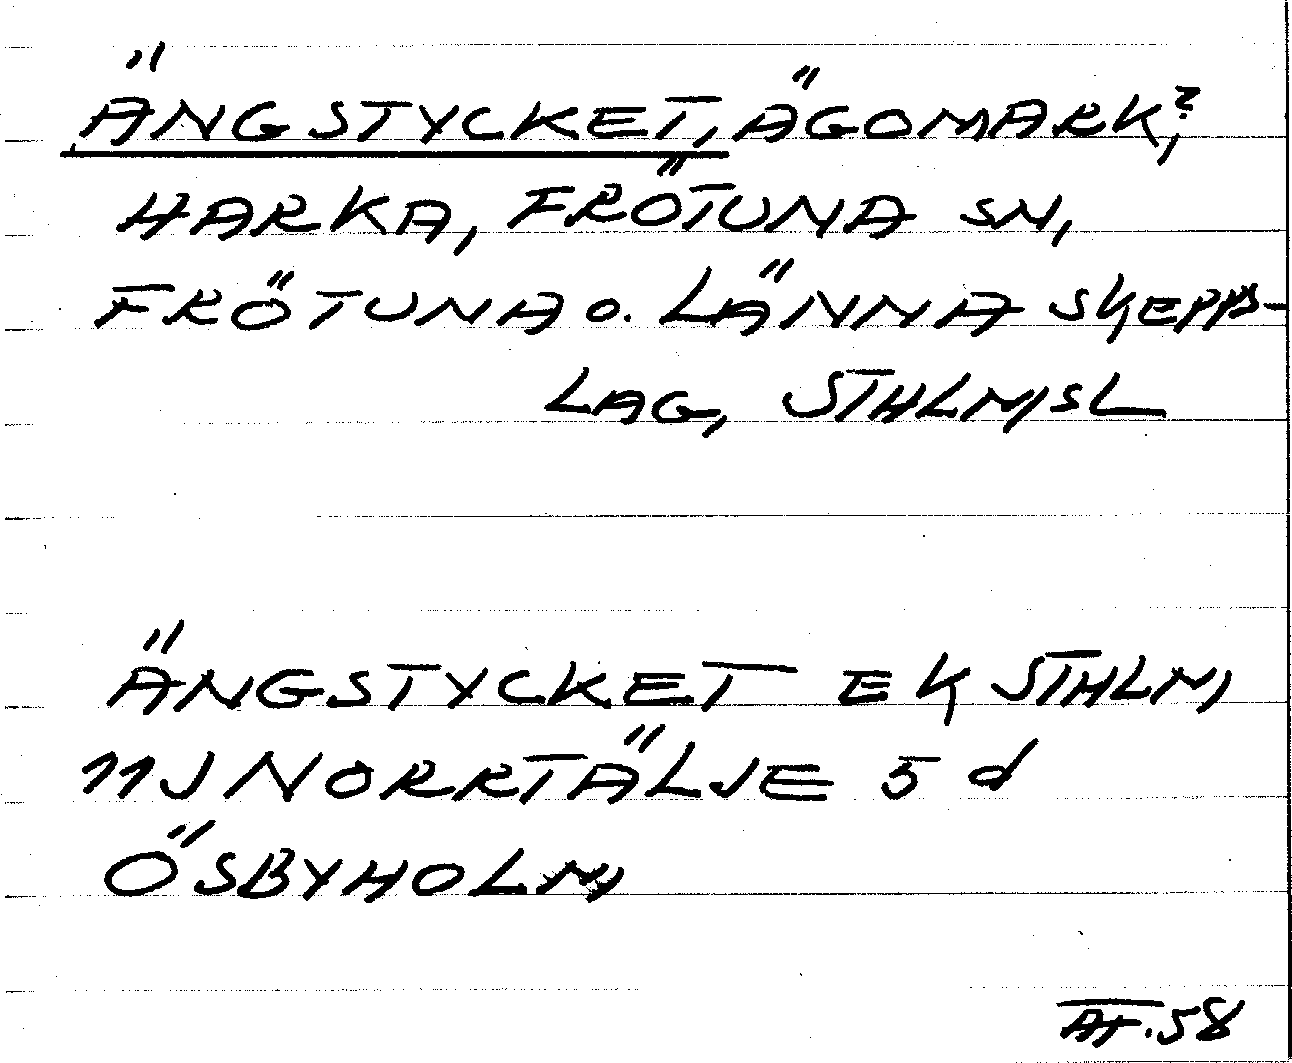 ÄNGSTYCKET, ÄGOMARK?,
HARKA, FRÖTUNA SN,
FRÖTUNA o. LÄNNA SKEPPS-
LAG, STHLMSL
ÄNGSTYCKET EK STHLM
11J NORRTÄLJE 5 d
ÖSBYHOLM
AF. 58